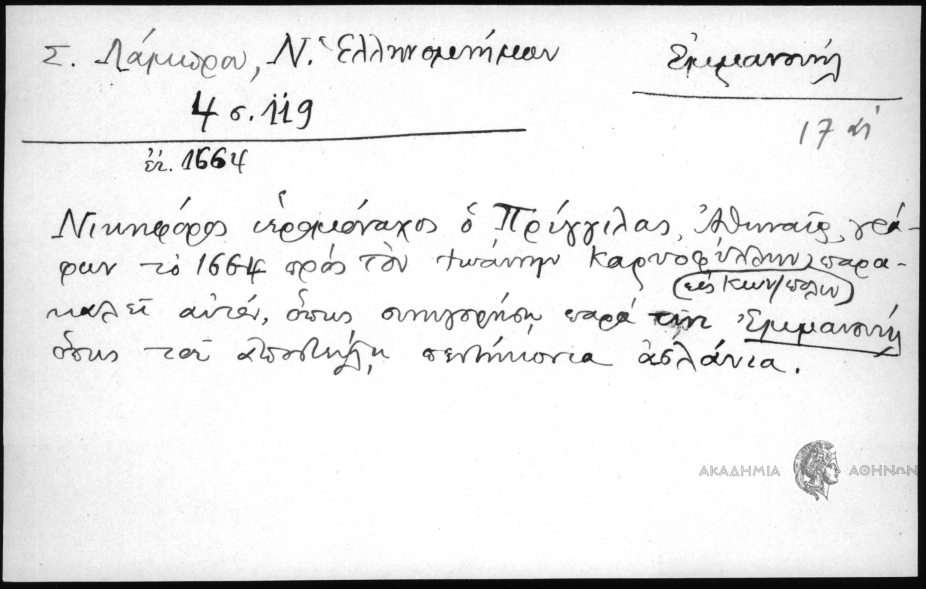 Σ. Λάμπρου, Ν. Ἑλληνομνήμων
Ἐμμανουήλ
4 σ. 119
17 αἰ
ἐτ. 1664
Νικηφόρος ἱερομόναχος ὁ Πρίγγιλας, Ἀθηναῖος, γρά-
φων τὸ 1664 πρὸς τὸν Ἰωάννην Καρυοφύλλην, παρα-
(εἰς Κων/πολιν)
καλεῖ αὐτόν, ὅπως συνηγορήσῃ παρὰ τῷ Ἐμμανουὴλ
ὅπως τοῦ ἀποστείλῃ πεντήκοντα ἀσλάνια.
ΑΚΑΔΗΜΙΑ ΑΘΗΝΩΝ